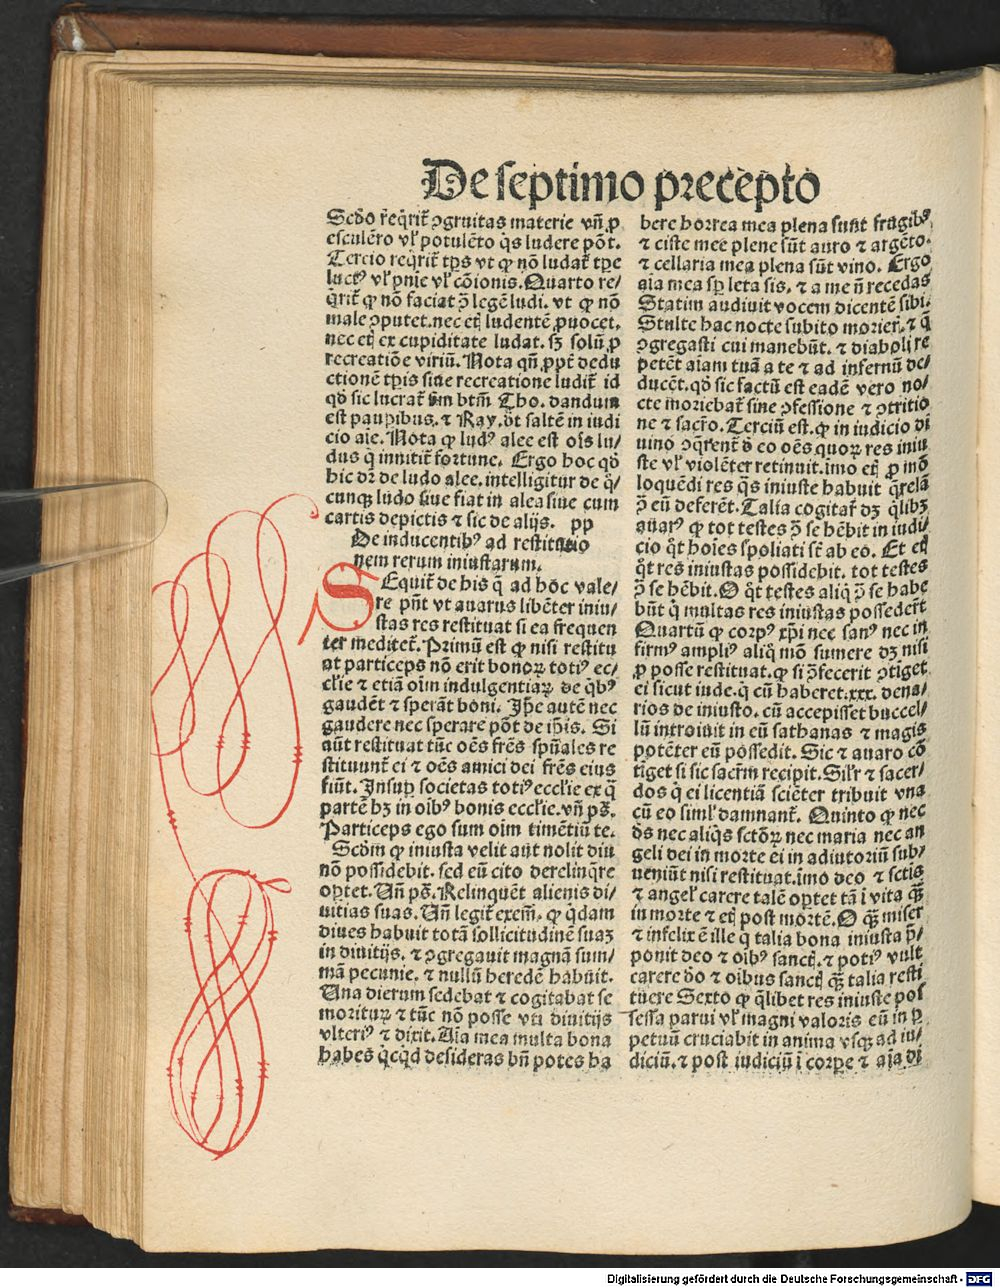 De septimo precepto
Scďo req̇rit᷑ ꝯgruitas materie vñ ꝓ
esculēto vl̕ potulēto q̇s ludere pōt.
Tercio req̇rit᷑ tp̄s vt ꝙ nō ludat᷑ tp̄e
luctꝰ vl̕ pnīe vl̕ cōionis. Quarto re⸗
q̇rit᷑ ꝙ nō faciat ꝯ̄ legē ludi. vt ꝙ nō
male ꝯputet. nec etꝫ ludentē ꝓuocet.
nec etꝫ ex cupiditate ludat. sꝫ solū ꝓ
recreatiōe viriū. Nota qn̄ ꝓpt᷑ dedu
ctionē tp̄is siue recreatione ludit᷑ id
qď sic lucrat᷑ ẜm btm̄ Tho. dandum
est paupībus. ⁊ Ray. ďt saltē in iudi
cio aīe. Nota ꝙ ludꝰ alee est oīs lu⸗
dus q̇ innitit᷑ fortune. Ergo hoc qď
hic dr̄ de ludo alee. intelligitur de q̇⸗
cunqꝫ ludo siue fiat in alea siue cum
cartis depictis ⁊ sic de alijs. pp
De inducentibꝰ ad restitutio
nem rerum iniustarum.
SEquit᷑ de his q̄ ad hoc vale⸗
re pn̄t vt auarus libēter iniu⸗
stas res restituat si ea frequen
ter meditet᷑. Primū est ꝙ nisi restitu
at particeps nō erit bonoꝝ totiꝰ ec⸗
cl̄ie ⁊ etiā oīm indulgentiaꝝ de q̇bꝰ
gaudēt ⁊ sperāt boni. Ip̄e autē nec
gaudere nec sperare pōt de ip̄is. Si
aūt restituat tūc oēs frēs spūales re
stituunt᷑ ei ⁊ oēs amici dei frēs eius
fiūt. Insuꝑ societas totiꝰ eccl̄ie ex q̄
partē hꝫ in oībꝰ bonis eccl̄ie. vñ pš.
Particeps ego sum oīm timētiū te.
Scďm ꝙ iniusta velit aut nolit diu
nō possidebit. sed eū cito derelinq̄re
oꝑtet. Vñ pš. Relinquēt alienis di⸗
uitias suas. Vñ legit᷑ exem̄. ꝙ q̇dam
diues habuit totā sollicitudinē suaꝫ
in diuitijs. ⁊ ꝯgregauit magnā sum⸗
mā pecunie. ⁊ nullū heredē habuit.
Vna dierum sedebat ⁊ cogitabat se
moriturꝝ ⁊ tūc nō posse vti diuitijs
vlteriꝰ ⁊ dixit. Aīa mea multa bona
habes q̇cq̇d desideras bn̄ potes ha
bere horrea mea plena sunt frugibꝰ
⁊ ciste mee plene sūt auro ⁊ argēto.
⁊ cellaria mea plena sūt vino. Ergo
aīa mea sꝑ leta sis. ⁊ a me n̄ recedas
Statim audiuit vocem dicentē sibi.
Stulte hac nocte subito morier̄. ⁊ q̄
ꝯgregasti cui manebūt. ⁊ diaboli re
petēt aīam tuā a te ⁊ ad infernū de⸗
ducēt. qď sic factū est eadē vero no⸗
cte moriebat᷑ sine ꝯfessione ⁊ ꝯtritio
ne ⁊ sacr̄o. Terciū est. ꝙ in iudicio di
uino ꝯq̄rent᷑ ď eo oēs quoꝝ res iniu
ste vl̕ violēter retinuit. īmo etꝫ ꝓ mō
loquēdi res q̇s iniuste habuit q̄relā
ꝯ̄ eū deferēt. Talia cogitar̄ dꝫ q̇libꝫ
auarꝰ ꝙ tot testes ꝯ̄ se hēbit in iudi⸗
cio q̇t hoīes spoliati sūt ab eo. Et etꝫ
q̇t res iniustas possidebit. tot testes
ꝯ̄ se hēbit. O q̇t testes aliq̇ ꝯ̄ se habe
būt q̇ multas res iniustas possedert̄
Quartū ꝙ corpꝰ xp̄i nec sanꝰ nec in
firmꝰ ampliꝰ aliq̇ mō sumere dꝫ nisi
ꝓ posse restituat. ꝙ si ꝯ̄fecerit ꝯtiget
ei sicut iude. q̇ cū haberet. xxx. dena⸗
rios de iniusto. cū accepisset buccel⸗
lū introiuit in eū sathanas ⁊ magis
potēter eū possedit. Sic ⁊ auaro cō
tiget si sic sacr̄m recipit. Silr̄ ⁊ sacer⸗
dos q̇ ei licentiā sciēter tribuit vna
cū eo siml̕ damnant᷑. Quinto ꝙ nec
ďs nec aliq̇s sctōꝝ nec maria nec an
geli dei in morte ei in adiutoriū sub⸗
ueniūt nisi restituat. īmo deo ⁊ sctīs
⁊ angel̕ carere talē oꝑtet tā ī vita q̄ꝫ
in morte ⁊ etꝫ post mortē. O q̄ꝫ miser
⁊ infelix ē ille q̇ talia bona iniusta p̄⸗
ponit deo ⁊ oībꝰ sanctꝭ. ⁊ potiꝰ vult
carere ďo ⁊ oībus sanctꝭ q̄ꝫ talia resti
tuere Sexto ꝙ q̇libet res iniuste pos
sessa parui vl̕ magni valoris eū in ꝑ
petuū cruciabit in anima vsqꝫ ad iu⸗
diciū. ⁊ post iudiciū ī corꝑe ⁊ aīa. Di
Digitalisierung gefördert durch die Deutsche Forschungsgemeinschaft - DFG